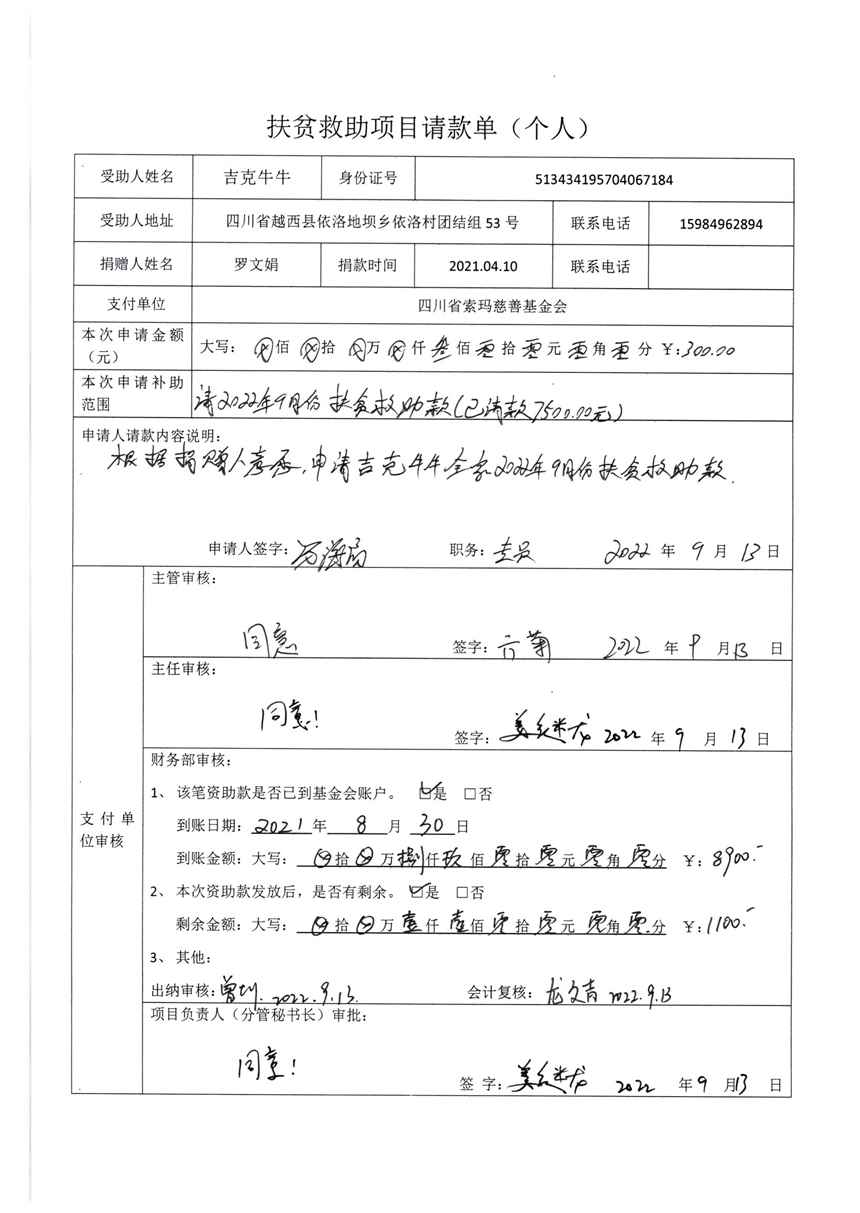 扶贫救助项目请款单（个人）
受助人姓名 吉克牛牛 身份证号 513434195704067184
受助人地址 四川省越西县依洛地坝乡依洛村团结组 53 号 联系电话 15984962894
捐赠人姓名 罗文娟 捐款时间 2021.04.10 联系电话
支付单位 四川省索玛慈善基金会
本次申请金额（元） 大写：⊗佰⊗拾⊗万⊗仟叁佰零拾零元零角零分 ￥:300.00
本次申请补助范围 请2022年9月份扶贫救助款(已请款7500.00元)
申请人请款内容说明：
根据捐赠人意愿,申请吉克牛牛全家2022年9月份扶贫救助款.
申请人签字: 职务: 专员 2022 年 9 月 13 日
支付单位审核
主管审核：
同意
签字: 2022 年 9 月 13 日
主任审核：
同意!
签字: 2022 年 9 月 13 日
财务部审核：
1、 该笔资助款是否已到基金会账户。 ☑是 □否
到账日期: 2021 年 8 月 30 日
到账金额: 大写: ⊗拾⊗万捌仟玖佰零拾零元零角零分 ￥: 8900.-
2、 本次资助款发放后，是否有剩余。 ☑是 □否
剩余金额: 大写: ⊗拾⊗万壹仟壹佰零拾零元零角零分 ￥: 1100.-
3、 其他:
出纳审核: 2022.9.13. 会计复核: 龙文青 2022.9.13
项目负责人（分管秘书长）审批:
同意!
签 字: 2022 年 9 月 13 日